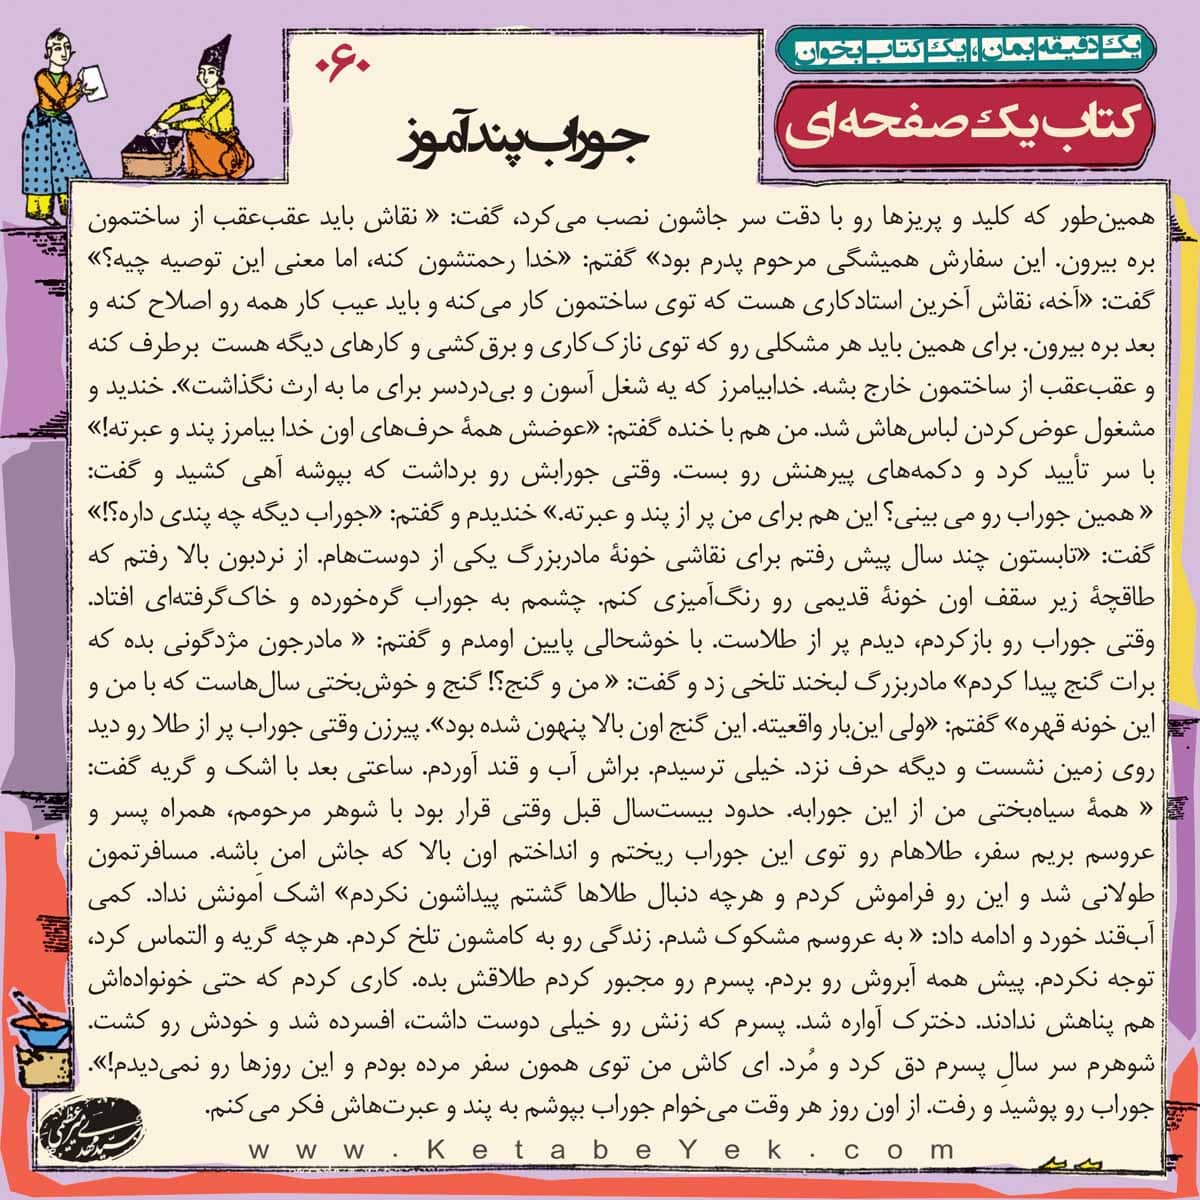 یک دقیقه بمان، یک کتاب بخوان
کتاب یک صفحه‌ای
۰۶۰
جوراب پندآموز
همین‌طور که کلید و پریزها رو با دقت سر جاشون نصب می‌کرد، گفت: « نقاش باید عقب‌عقب از ساختمون
بره بیرون. این سفارش همیشگی مرحوم پدرم بود» گفتم: «خدا رحمتشون کنه، اما معنی این توصیه چیه؟»
گفت: «آخه، نقاش آخرین استادکاری هست که توی ساختمون کار می‌کنه و باید عیب کار همه رو اصلاح کنه و
بعد بره بیرون. برای همین باید هر مشکلی رو که توی نازک‌کاری و برق‌کشی و کارهای دیگه هست برطرف کنه
و عقب‌عقب از ساختمون خارج بشه. خدابیامرز که یه شغل آسون و بی‌دردسر برای ما به ارث نگذاشت». خندید و
مشغول عوض‌کردن لباس‌هاش شد. من هم با خنده گفتم: «عوضش همهٔ حرف‌های اون خدا بیامرز پند و عبرته!»
با سر تأیید کرد و دکمه‌های پیرهنش رو بست. وقتی جورابش رو برداشت که بپوشه آهی کشید و گفت:
« همین جوراب رو می بینی؟ این هم برای من پر از پند و عبرته.» خندیدم و گفتم: «جوراب دیگه چه پندی داره؟!»
گفت: «تابستون چند سال پیش رفتم برای نقاشی خونهٔ مادربزرگ یکی از دوست‌هام. از نردبون بالا رفتم که
طاقچهٔ زیر سقف اون خونهٔ قدیمی رو رنگ‌آمیزی کنم. چشمم به جوراب گره‌خورده و خاک‌گرفته‌ای افتاد.
وقتی جوراب رو بازکردم، دیدم پر از طلاست. با خوشحالی پایین اومدم و گفتم: « مادرجون مژدگونی بده که
برات گنج پیدا کردم» مادربزرگ لبخند تلخی زد و گفت: « من و گنج؟! گنج و خوش‌بختی سال‌هاست که با من و
این خونه قهره» گفتم: «ولی این‌بار واقعیته. این گنج اون بالا پنهون شده بود». پیرزن وقتی جوراب پر از طلا رو دید
روی زمین نشست و دیگه حرف نزد. خیلی ترسیدم. براش آب و قند آوردم. ساعتی بعد با اشک و گریه گفت:
« همهٔ سیاه‌بختی من از این جورابه. حدود بیست‌سال قبل وقتی قرار بود با شوهر مرحومم، همراه پسر و
عروسم بریم سفر، طلاهام رو توی این جوراب ریختم و انداختم اون بالا که جاش امن باشه. مسافرتمون
طولانی شد و این رو فراموش کردم و هرچه دنبال طلاها گشتم پیداشون نکردم» اشک اَمونش نداد. کمی
آب‌قند خورد و ادامه داد: « به عروسم مشکوک شدم. زندگی رو به کامشون تلخ کردم. هرچه گریه و التماس کرد،
توجه نکردم. پیش همه آبروش رو بردم. پسرم رو مجبور کردم طلاقش بده. کاری کردم که حتی خونواده‌اش
هم پناهش ندادند. دخترک آواره شد. پسرم که زنش رو خیلی دوست داشت، افسرده شد و خودش رو کشت.
شوهرم سر سالِ پسرم دق کرد و مُرد. ای کاش من توی همون سفر مرده بودم و این روزها رو نمی‌دیدم!».
جوراب رو پوشید و رفت. از اون روز هر وقت می‌خوام جوراب بپوشم به پند و عبرت‌هاش فکر می‌کنم.
www.KetabeYek.com